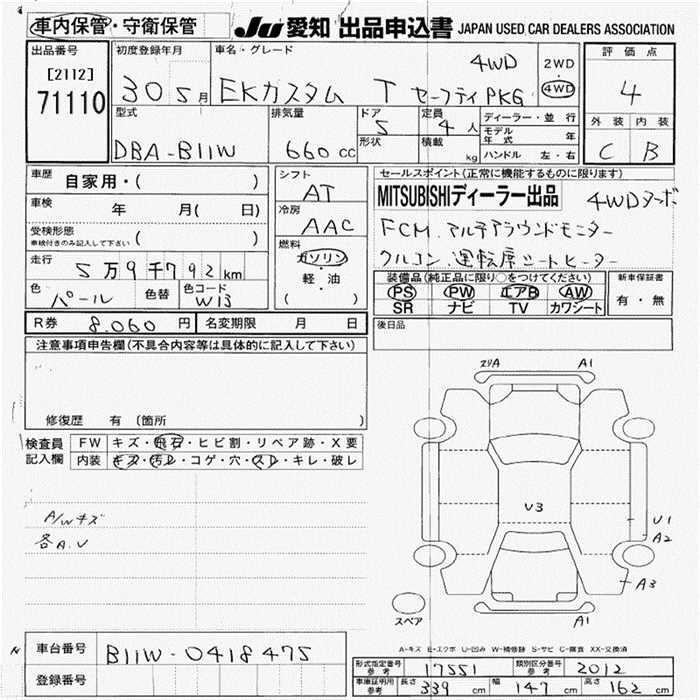 車内保管・守衛保管 JU 愛知 出品申込書 JAPAN USED CAR DEALERS ASSOCIATION
出品番号 初度登録年月 車名・グレード 評価点
[2112] 30 5月 EKカスタム T セーフティPKG 4WD 2WD 4WD 4
71110
型式 排気量 ドア 定員 ディーラー・並行 外装 内装
DBA-B11W 660cc 5 4人 モデル年式 年 C B
形状 積載 kg ハンドル 左・右
車歴 自家用・( ) シフト セールスポイント(正常に機能するものに限ります)
AT MITSUBISHIディーラー出品 4WDターボ
車検 年 月( 日) 冷房
AAC FCM.マルチアラウンドモニター
受検形態 ( ) 燃料
車検付きのみ記入して下さい ガソリン クルコン.運転席シートヒーター
走行 5万9千792km 軽・油 装備品(純正品に限り○をつけてください) 新車保証書
( ) PS PW エアB AW 有・無
色 パール 色替 色コード W13 SR ナビ TV カワシート
R券 8.060円 名変期限 月 日 後日品
注意事項申告欄(不具合内容等は具体的に記入して下さい)
修復歴 有 (箇所 )
検査員 FW キズ・飛石・ヒビ割・リペア跡・X要
記入欄 内装 キズ・汚レ・コゲ・穴・スレ・キレ・破レ
A/Wキズ
各A.U
A1
U3
U1
A2
A3
スペア A1
A-キズ E-エクボ U-凹み W-補修跡 S-サビ C-腐食 XX-交換済
車台番号 B11W-0418475
登録番号
形式指定番号 参考 17551 類別区分番号 参考 2012
車庫証明用 参考 長さ 339cm 幅 147cm 高さ 162cm